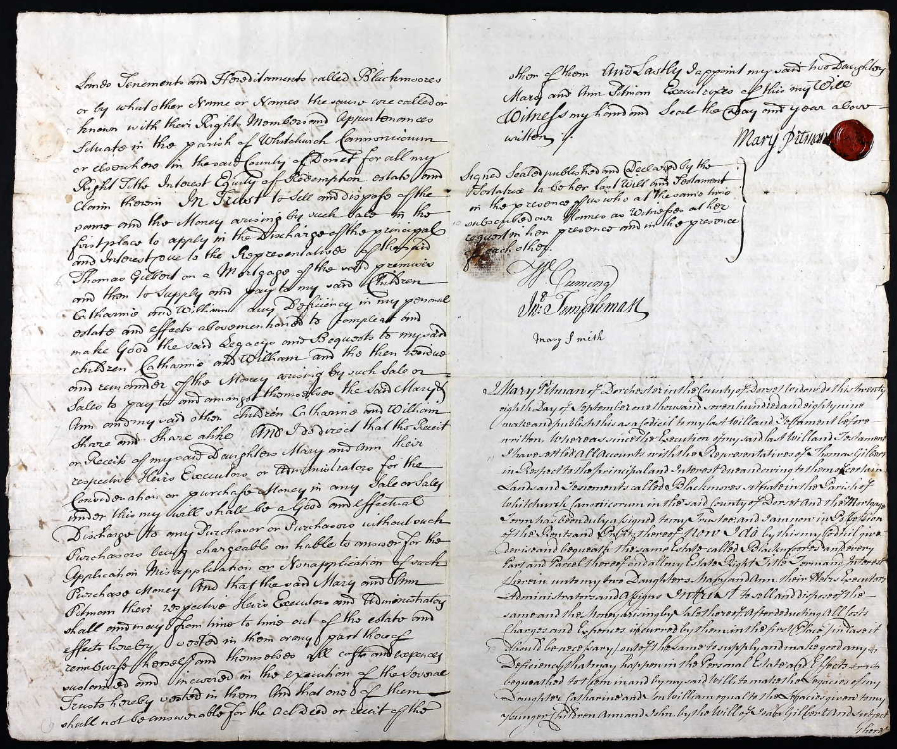 Lands Tenements and Hereditaments called Blackmoores
or by what other Name or Names the same are called or
known with their Rights Members and Appurtenances
Situate in the parish of Whitchurch Cannonicorum
or elsewhere in the said County of Dorset for all my
Right Title Interest Equity of Redemption estate and
Claim therein In Trust to Sell and dispose of the
same and the Money arising by such Sale in the
first place to apply in the Discharge of the principal
and Interest due to the Representatives of the said
Thomas Gilbert on a Mortgage of the said premises
and then to Supply and pay to my said Children
Catharine and William any Deficiency in my personal
estate and effects abovementioned to compleat and
make Good the said Legacys and Bequests to my said
children Catharine and William and the then residue
and remainder of the Money arising by such Sale or
Sales to pay to and amongst themselves the said Mary &
Ann and my said other children Catharine and William
share and share alike And I do direct that the Receit
or Receits of my said Daughters Mary and Ann their
respective Heirs Executors or Administrators for the
Consideration or purchase Money in any Sale or Sales
under this my Will shall be a Good and effectual
Discharge to any Purchaser or Purchasers without such
Purchasers being chargeable or liable to answer for the
Application Misapplication or Nonapplication of such
Purchase Money And that the said Mary and Ann
Pitman their respective Heirs Executors and Administrators
shall and may from time to time out of the estate and
effects hereby vested in them or any part thereof
reimburse herself and themselves all costs and expences
sustained and incurred in the execution of the several
Trusts hereby vested in them And that one of them
shall not be answerable for the Act Deed or receit of the
other of them And Lastly I appoint my said two Daughters
Mary and Ann Pitman Executrixes of this my Will
Witness my hand and Seal the Day and year above
written
Mary Pitman
Signed Sealed published and Declared by the
Testatrix to be her last Will and Testament
in the presence of us who at the same time
subscribed our Names as Witnesses at her
request in her presence and in the presence
of each other
Cuming
Jno. Templeman
Mary Smith
I Mary Pitman of Dorchester in the County of Dorset Widow do this twenty
eighth Day of September one thousand seven hundred and eighty nine
make and publish this as a Codicil to my last Will and Testament before
written Whereas since the Execution of my said last Will and Testament
I have settled Accounts with the Representatives of Thomas Gilbert
in Respect to the principal and Interest due and owing to them of certain
Lands and Tenements called Blackmores situate in the Parish of
Whitchurch Canonicorum in the said County of Dorset and the Mortgage
Term has been duly assigned to my Trustee and I am now in Possession
of the Rents and Profits thereof Now I do by this my Codicil give
devise and bequeath the same Estate called Blackmores and every
Part and Parcel thereof and all my Estate Right Title Term and Interest
therein unto my two Daughters Mary and Ann their Heirs Executors
Administrators and Assigns In trust to sell and dispose of the
same and the Money arising by Sale thereof after deducting All Costs
Charges and Expences incurred by them in the first Place (in Case it
should be necessary) out of the same to supply and make good any
Deficiency that may happen in the Personal Estate and Effects
bequeathed to them in and by my said Will to make the Legacies of my
Daughter Catharine and Son William equal to the Legacies given to my
younger Children Ann and John by the Will of Isaac Gilbert And subject
thereto